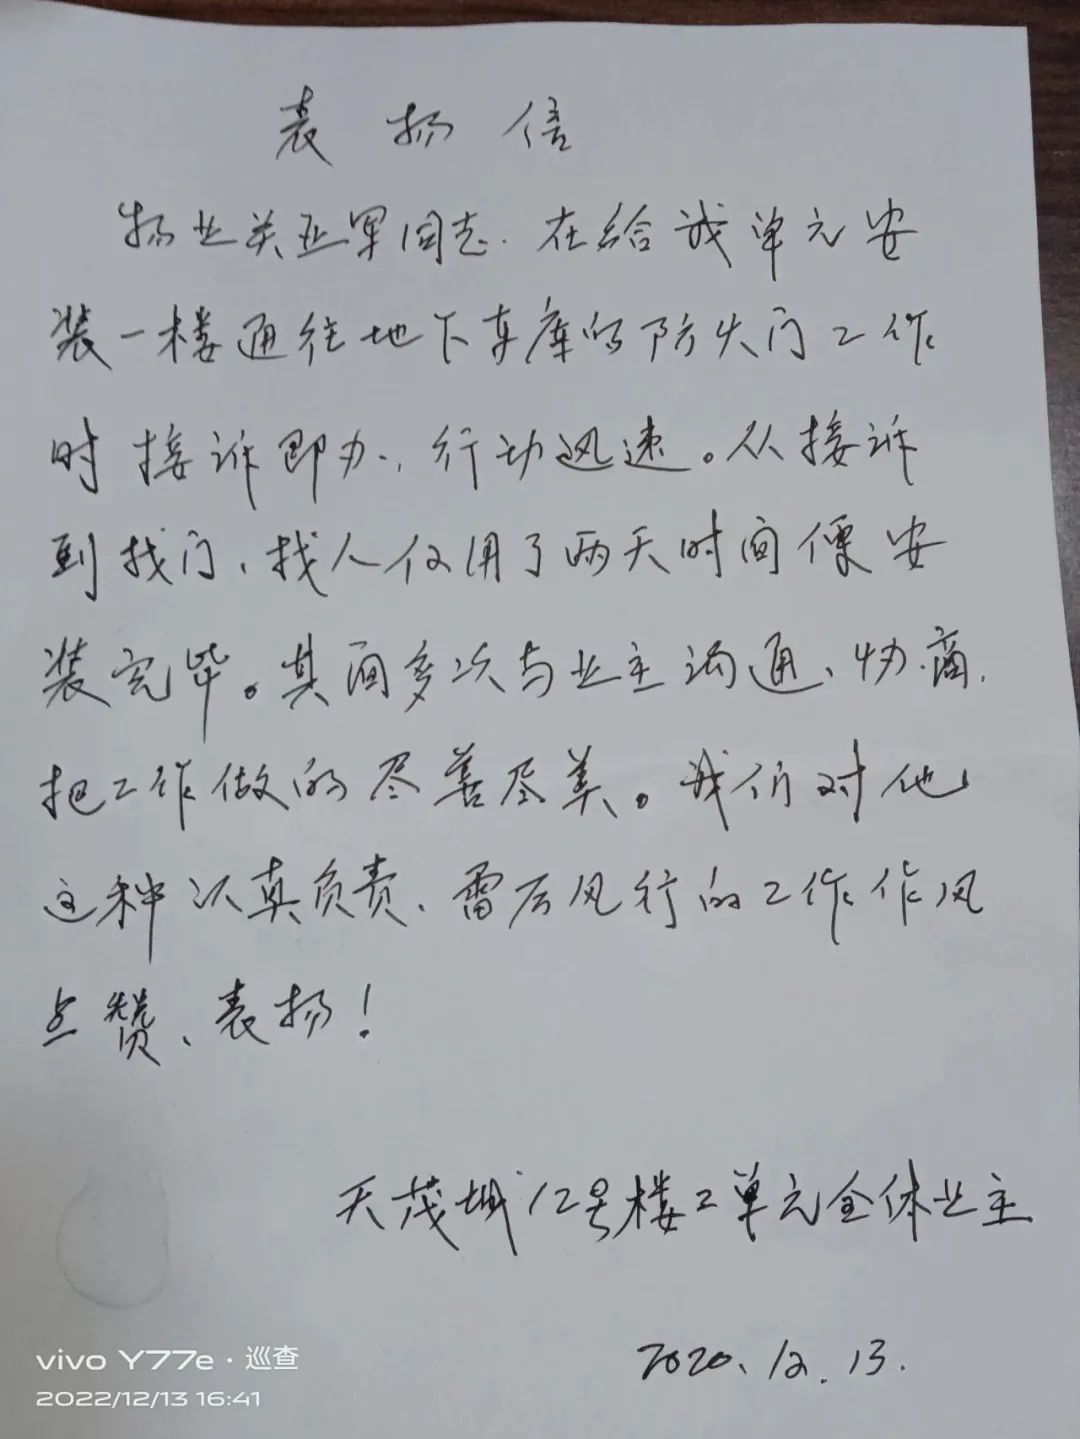 表扬信
物业关亚军同志.在给我单元安
装一楼通往地下车库的防火门工作
时接诉即办,行动迅速。从接诉
到找门、找人仅用了两天时间便安
装完毕。其间多次与业主沟通、协商,
把工作做的尽善尽美。我们对他
这种认真负责、雷厉风行的工作作风
点赞、表扬!
天茂城12号楼2单元全体业主
2020.12.13.
vivo Y77e · 巡查
2022/12/13 16:41